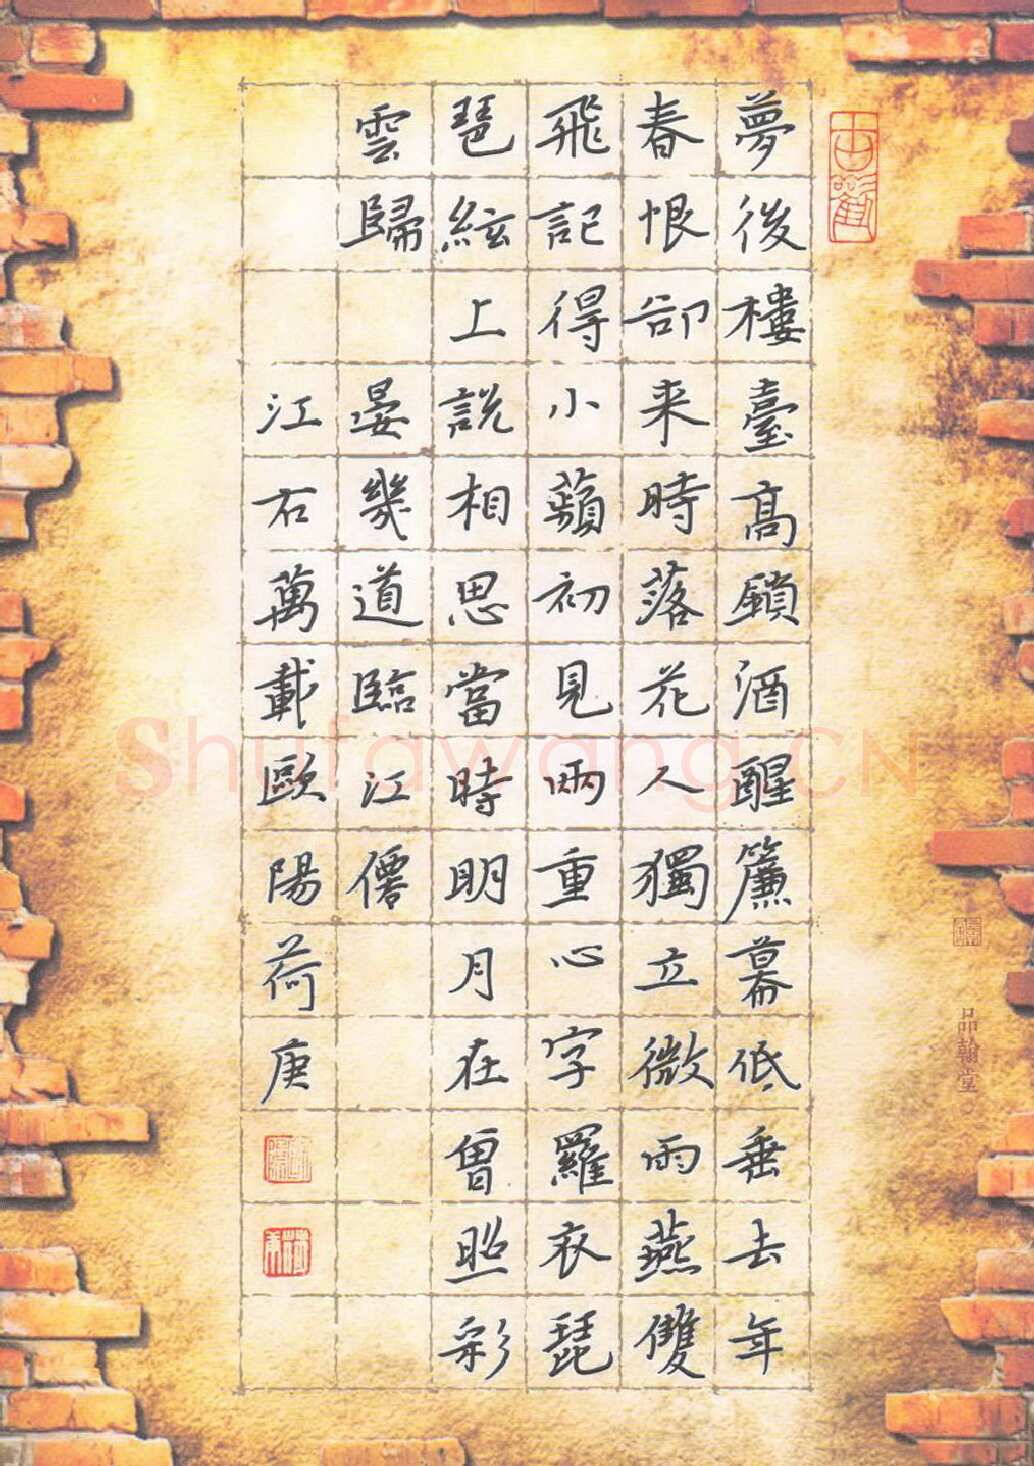 夢後樓臺高鎖酒醒簾幕低垂去年
春恨卻来時落花人獨立微雨燕雙
飛記得小蘋初見兩重心字羅衣琵
琶絃上說相思當時明月在曾照彩
雲歸 晏幾道臨江僊
江右萬載歐陽荷庚
品翰堂
Shufawang.CN